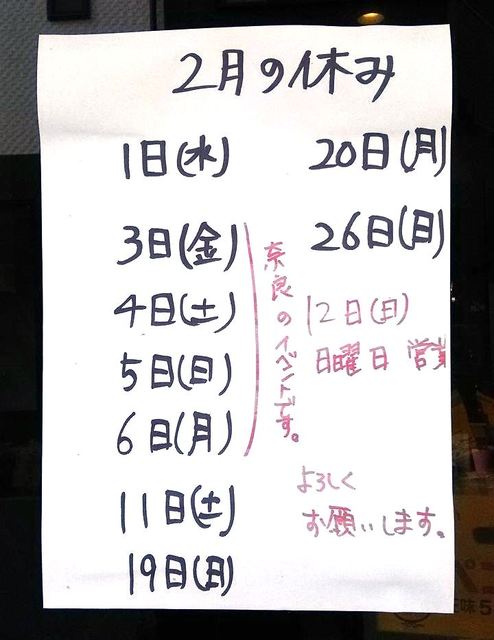 2月の休み
1日(水)
3日(金)
4日(土)
5日(日)
6日(月)
11日(土)
19日(日)
20日(月)
26日(日)
奈良のイベントです。
12日(日)
日曜日 営業
よろしく
お願いします。